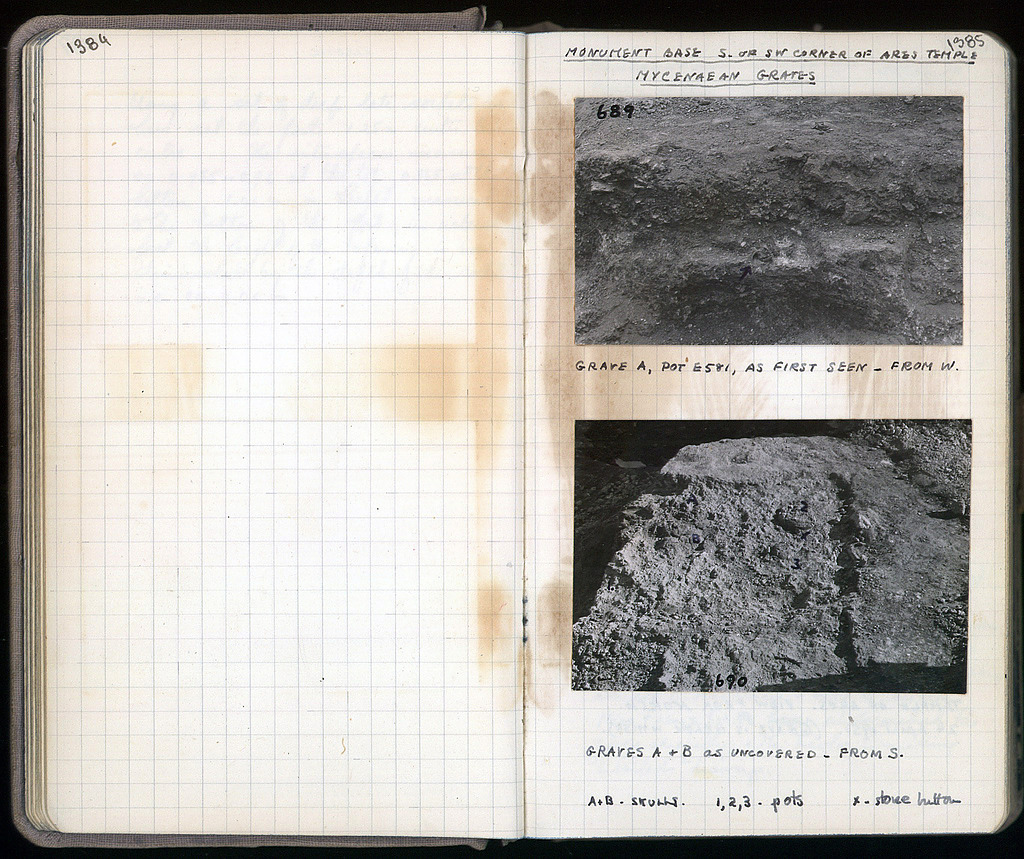 1384
1385
MONUMENT BASE S. OF SW CORNER OF ARES TEMPLE
MYCENAEAN GRAVES
689
GRAVE A, POT E581, AS FIRST SEEN - FROM W.
A
2
B
1
3
690
GRAVES A + B as UNCOVERED - FROM S.
A+B - SKULLS. 1,2,3 - pots x - stone button